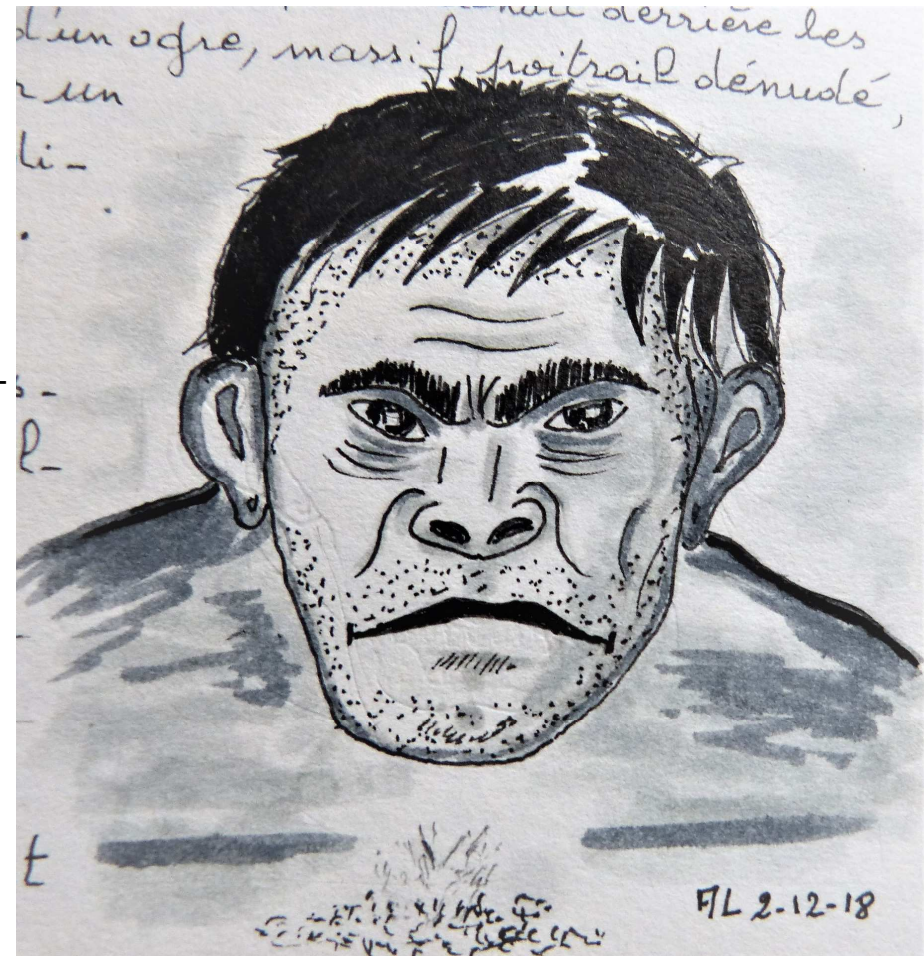 derrière les
d'un ogre, massif, poitrail dénudé,
un
li-
s-
l-
t
FJL 2-12-18